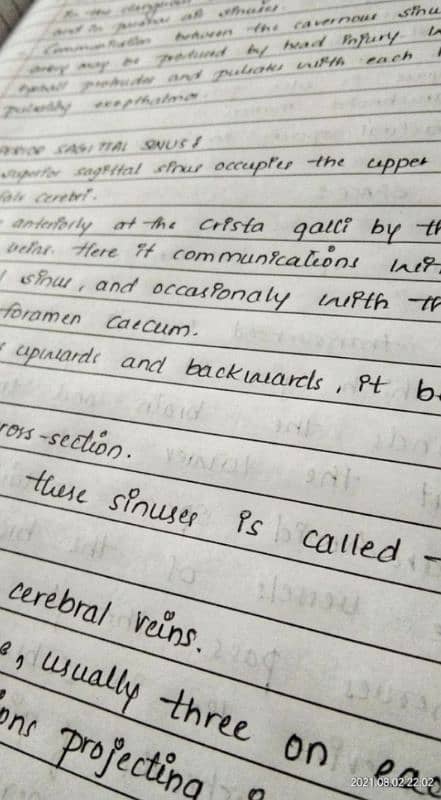 To the
and in
Communication between the cavernous sinu
may be produced by head injury.
eyeball protrudes and pulsates with each
pulsating exopthalmos.
SAGITTAL SINUS :
superior sagittal sinus occupies the upper
falx cerebri.
anteriorly at the crista galli by th
veins. Here it communications wit
sinus, and occasionaly with th
foramen caecum.
upwards and backwards, it be
ross-section.
these sinuses is called -
cerebral veins.
e, usually three on eac
ons projecting
2021.08.02 22:02